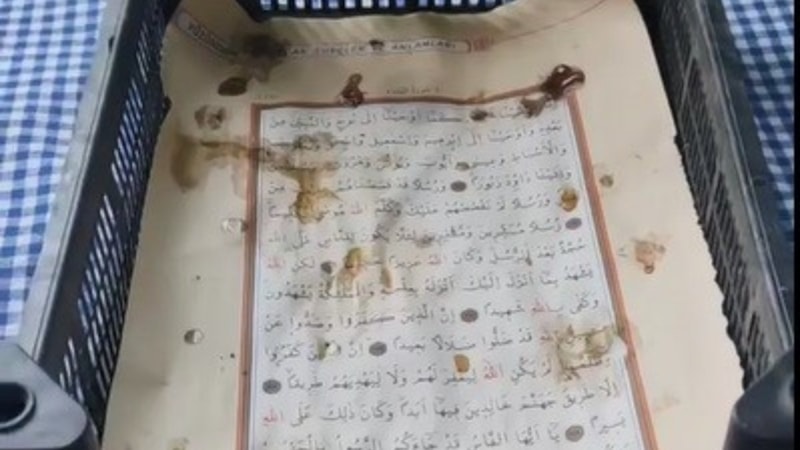 SURELER VE ANLAMLARI
اَوْحَيْنَا اِلٰى نُوحٍ وَالنَّبِيّٖنَ مِنْ
بَعْدِهٖ وَاَوْحَيْنَا اِلٰٓى اِبْرٰهٖيمَ وَاِسْمٰعٖيلَ
وَالْاَسْبَاطِ وَعٖيسٰى وَاَيُّوبَ وَيُونُسَ وَهٰرُونَ
وَاٰتَيْنَا دَاوُدَ زَبُورًا وَرُسُلًا قَدْ قَصَصْنَاهُمْ مِنْ
وَرُسُلًا لَمْ نَقْصُصْهُمْ عَلَيْكَ وَكَلَّمَ اللّٰهُ مُوسٰى
رُسُلًا مُبَشِّرٖينَ وَمُنْذِرٖينَ لِئَلَّا يَكُونَ لِلنَّاسِ عَلَى اللّٰهِ
حُجَّةٌ بَعْدَ الرُّسُلِ وَكَانَ اللّٰهُ عَزٖيزًا لٰكِنِ اللّٰهُ
يَشْهَدُ بِمَٓا اَنْزَلَ اِلَيْكَ اَنْزَلَهُ بِعِلْمِهٖ وَالْمَلٰٓئِكَةُ يَشْهَدُونَ
وَكَفٰى بِاللّٰهِ شَهٖيدًا اِنَّ الَّذٖينَ كَفَرُوا وَصَدُّوا عَنْ
قَدْ ضَلُّوا ضَلَالًا بَعٖيدًا اِنَّ كَفَرُوا
لَمْ يَكُنِ اللّٰهُ لِيَغْفِرَ لَهُمْ وَلَا لِيَهْدِيَهُمْ طَرٖيقًا
اِلَّا طَرٖيقَ جَهَنَّمَ خَالِدٖينَ فٖيهَٓا اَبَدًا وَكَانَ ذٰلِكَ عَلَى اللّٰهِ
يَسٖيرًا يَٓا اَيُّهَا النَّاسُ قَدْ جَٓاءَكُمُ الرَّسُولُ بِالْحَقِّ